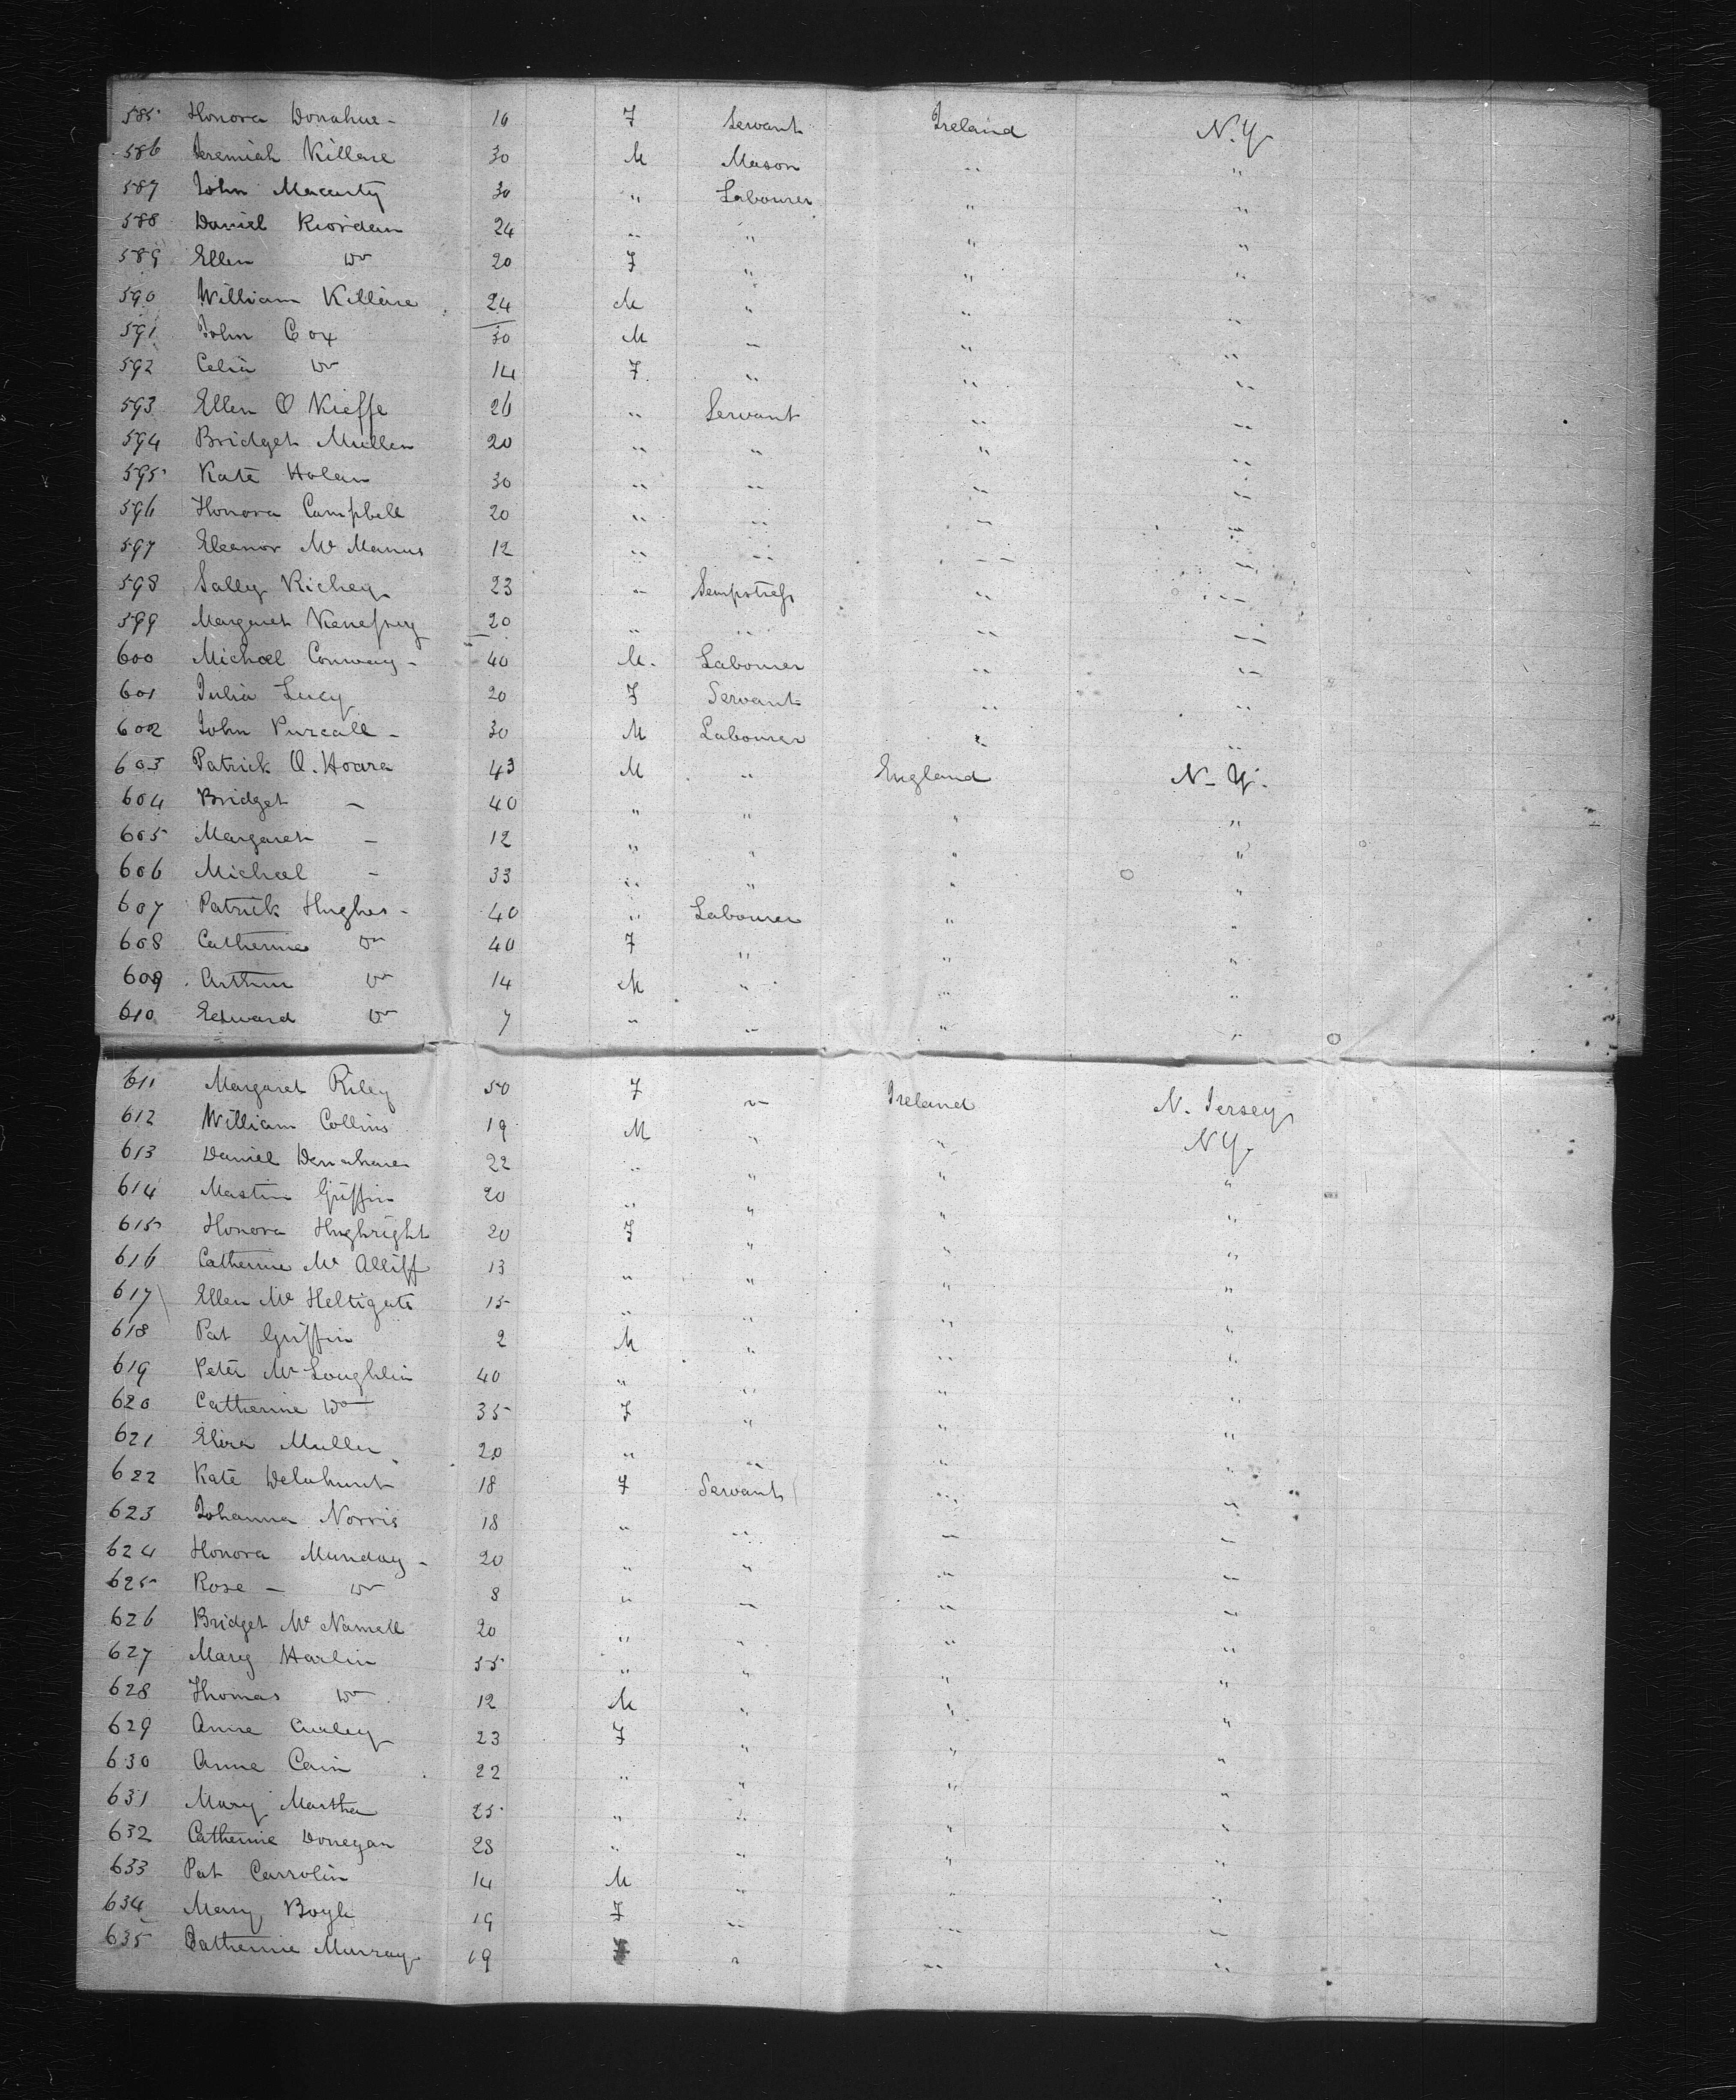 585 Honora Donahue - 16 F Servant Ireland N.Y
586 Jeremiah Killare 30 M Mason " "
587 John Macarty 30 " Labourer " "
588 Daniel Riordan 24 " " " "
589 Ellen Do 20 F " " "
590 William Killare 24 M " " "
591 John Cox 30 M " " "
592 Celia Do 14 F " " "
593 Ellen O Kieffe 26 " Servant " "
594 Bridget Mullen 20 " " " "
595 Kate Holan 30 " " " "
596 Honora Campbell 20 " " " "
597 Eleanor Mc Manus 12 " " " "
598 Sally Richey 23 " Sempstress " "
599 Margaret 20 " " " "
600 Michael Conway - 40 M. Labourer " "
601 Julia Lucy 20 F Servant " "
602 John Purcall - 30 M Labourer " "
603 Patrick O. Hoara 43 M " England N-Y.
604 Bridget - 40 " " " "
605 Margaret - 12 " " " "
606 Michael - 33 " " " "
607 Patrick Hughes - 40 " Labourer " "
608 Catherine Do 40 F " " "
609 Arthur Do 14 M " " "
610 Edward Do 7 " " " "
611 Margaret Riley 50 F " Ireland N. Jersey
612 William Collins 19 M " " NY.
613 Daniel Donahue 22 " " " "
614 Martin Griffin 20 " " " "
615 Honora Hughright 20 F " " "
616 Catherine Mc Alliff 13 " " " "
617 Ellen Mc Heltigate 15 " " " "
618 Pat Griffin 2 M " " "
619 Peter Mc Loughlin 40 " " " "
620 Catherine Do 35 F " " "
621 Eliza Muller 20 " " " "
622 Kate Delahunt 18 F Servant " "
623 Johanna Norris 18 " " " "
624 Honora Munday - 20 " " " "
625 Rose - Do 8 " " " "
626 Bridget Mc Namell 20 " " " "
627 Mary Harlin 55 " " " "
628 Thomas Do 12 M " " "
629 Anne Curley 23 F " " "
630 Anne Cain 22 " " " "
631 Mary Martha 25 " " " "
632 Catherine Donegan 28 " " " "
633 Pat Carrolin 14 M " " "
634 Mary Boyle 19 F " " "
635 Catherine Murray 19 F " " "